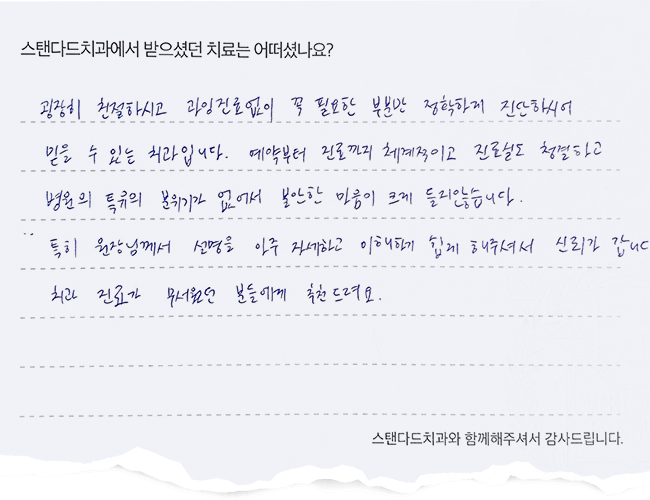 스탠다드치과에서 받으셨던 치료는 어떠셨나요?
굉장히 친절하시고 과잉진료없이 꼭 필요한 부분만 정확하게 진단하시어
믿을 수 있는 치과입니다. 예약부터 진료까지 체계적이고 진료실도 청결하고
병원의 특유의 분위기가 없어서 불안한 마음이 크게 들지않습니다.
특히 원장님께서 설명을 아주 자세하고 이해하기 쉽게 해주셔서 신뢰가 갑니다
치과 진료가 무서웠던 분들에게 추천드려요.
스탠다드치과와 함께해주셔서 감사드립니다.